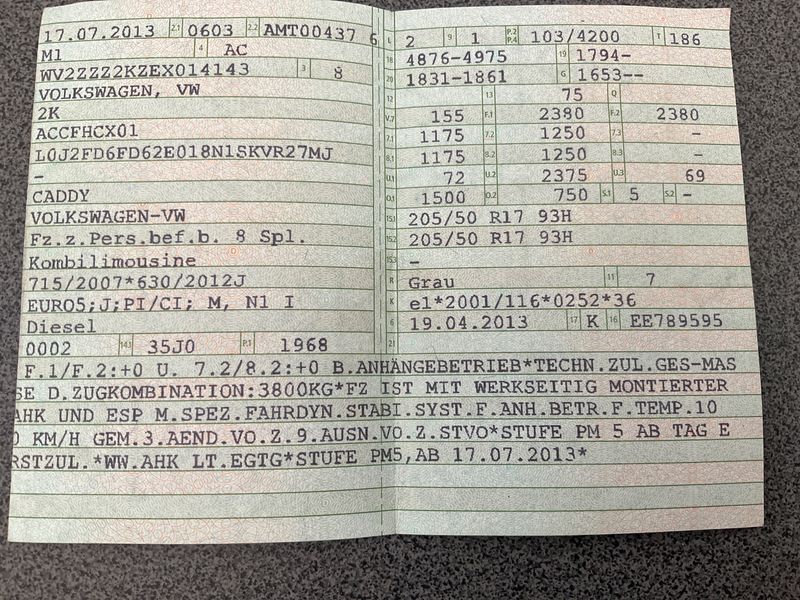 17.07.2013 2.1 0603 2.2 AMT00437 6
M1 4 AC
WV2ZZZ2KZEX014143 3 8
VOLKSWAGEN, VW
2K
ACCFHCX01
L0J2FD6FD62E018N1SKVR27MJ
-
CADDY
VOLKSWAGEN-VW
Fz.z.Pers.bef.b. 8 Spl.
Kombilimousine
715/2007*630/2012J
EURO5;J;PI/CI; M, N1 I
Diesel
0002 14.1 35J0 P.1 1968
L 2 9 1 P.2 P.4 103/4200 T 186
18 4876-4975 19 1794-
20 1831-1861 G 1653--
12 13 75 Q
V.7 155 F.1 2380 F.2 2380
7.1 1175 7.2 1250 7.3 -
8.1 1175 8.2 1250 8.3 -
U.1 72 U.2 2375 U.3 69
O.1 1500 O.2 750 S.1 5 S.2 -
15.1 205/50 R17 93H
15.2 205/50 R17 93H
15.3 -
R Grau 11 7
K e1*2001/116*0252*36
6 19.04.2013 17 K 16 EE789595
21
F.1/F.2:+0 U. 7.2/8.2:+0 B.ANHÄNGEBETRIEB*TECHN.ZUL.GES-MAS
SE D.ZUGKOMBINATION:3800KG*FZ IST MIT WERKSEITIG MONTIERTER
AHK UND ESP M.SPEZ.FAHRDYN.STABI.SYST.F.ANH.BETR.F.TEMP.10
0 KM/H GEM.3.AEND.VO.Z.9.AUSN.VO.Z.STVO*STUFE PM 5 AB TAG E
RSTZUL.*WW.AHK LT.EGTG*STUFE PM5,AB 17.07.2013*